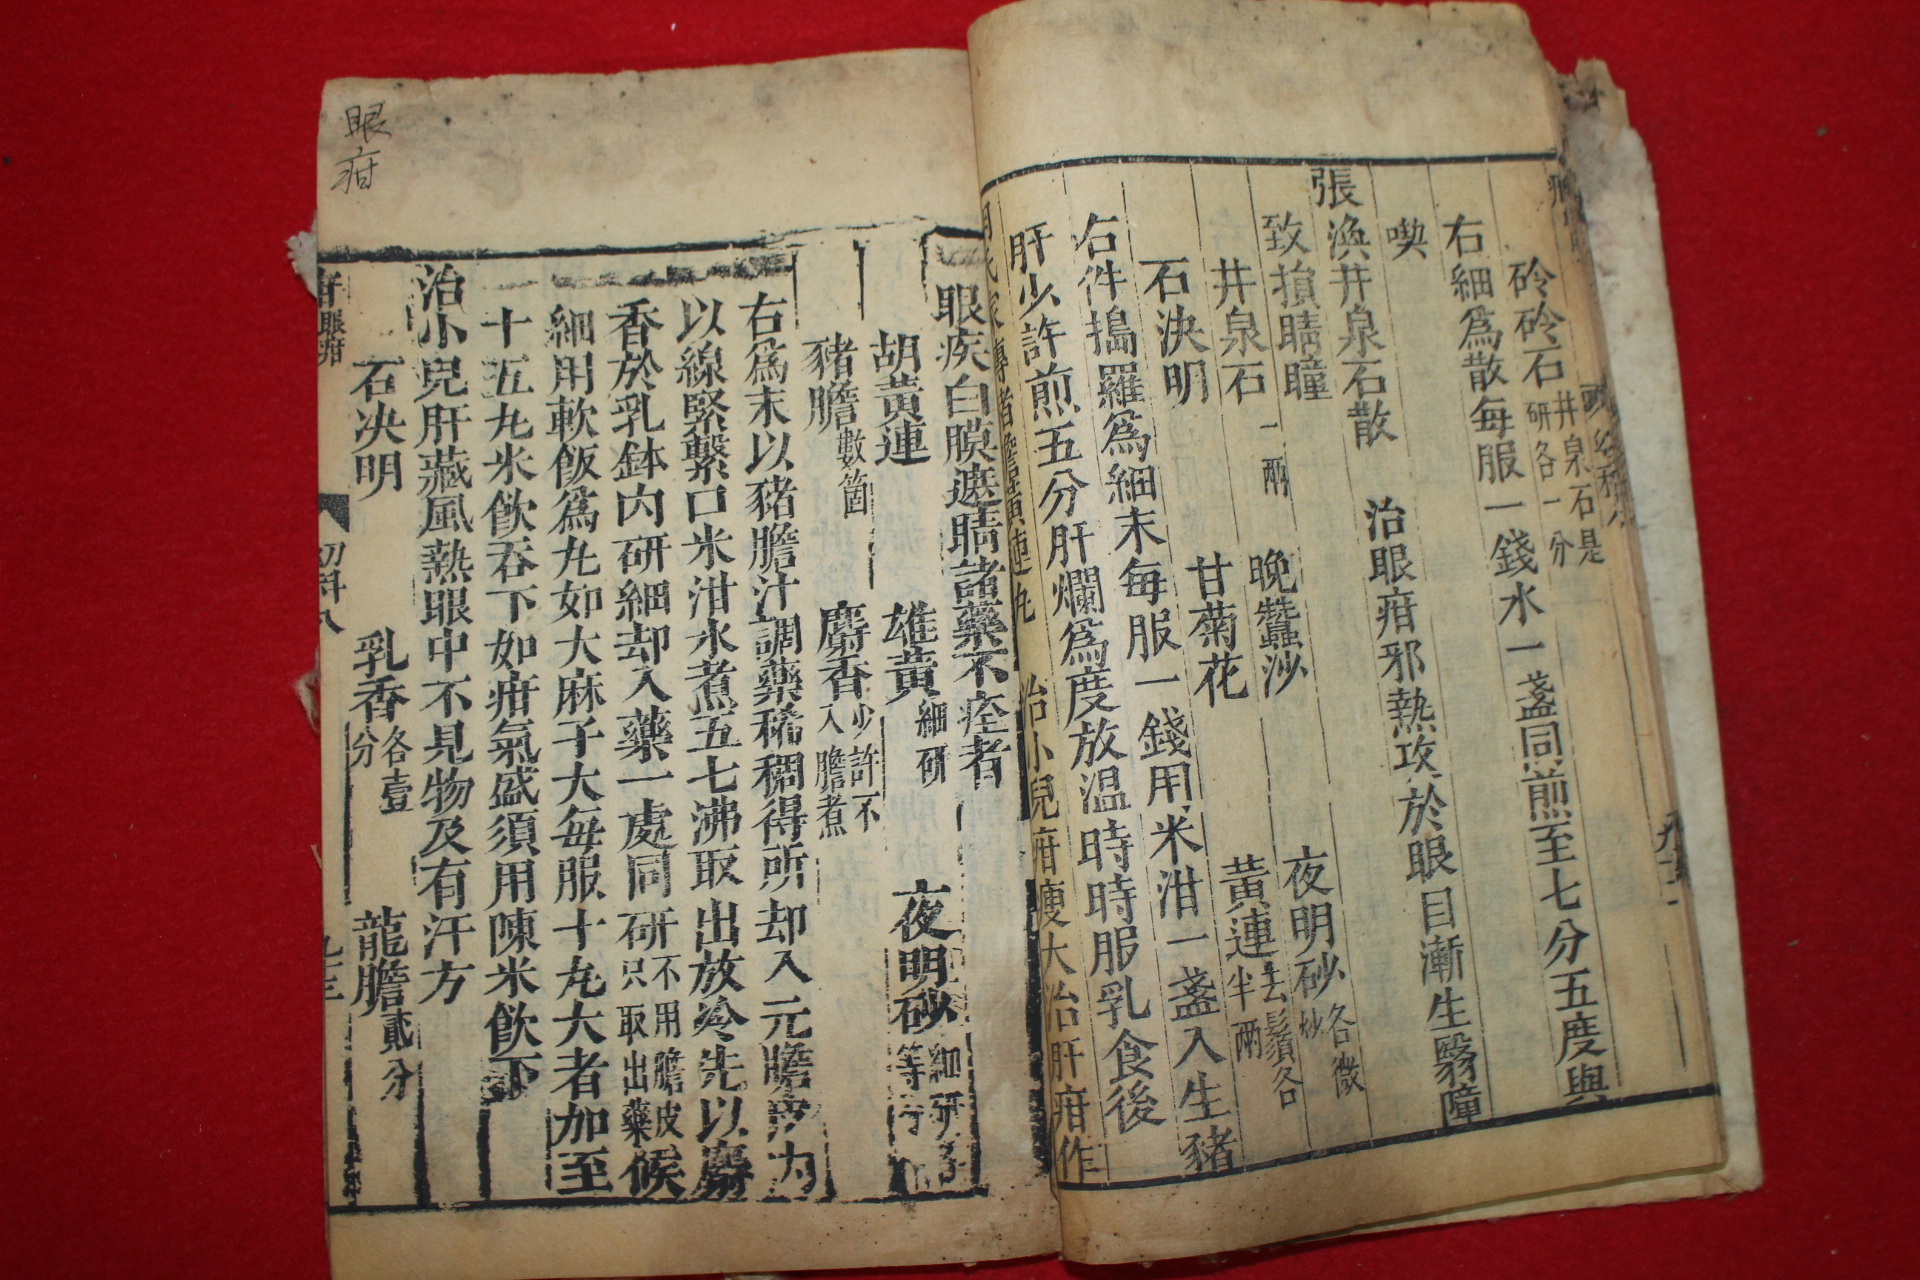 砱砱石井泉石是研各一分
右細為散每服一錢水一盞同煎至七分五度與
喫
張渙井泉石散 治眼疳邪熱攻於眼目漸生翳障
致損睛瞳
井泉石一兩 晚蠶沙 夜明砂各微炒
石決明 甘菊花 黃連去鬚各半兩
右件擣羅為細末每服一錢用米泔一盞入生猪
肝少許煎五分肝爛為度放温時時服乳食後
治小兒疳瘦大治肝疳作
眼疾白膜遮睛諸藥不痊者
胡黃連 雄黃細研 夜明砂細研
猪膽數箇 麝香少許不入膽煮
右為末以猪膽汁調藥稀稠得所却入元膽皮內
以線緊繫口米泔水煮五七沸取出放冷先以麝
香於乳鉢內研細却入藥一處同研不用膽皮只取出藥候
細用軟飯為丸如大麻子大每服十丸大者加至
十五丸米飲吞下如疳氣盛須用陳米飲下
治小兒肝藏風熱眼中不見物及有汗方
石决明 乳香各壹分 龍膽貳分
眼疳
幼科八
九十三